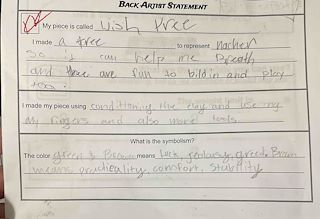 BACK ARTIST STATEMENT
My piece is called Wish tree
I made a tree to represent nacher
So it can help me breath
and thee are fun to bildin and play
too.
I made my piece using conditioning the clay and use ing
my fingers and also more tools
What is the symbolism?
The color green & Brown means Luck, jealousy, greed. Brown
means practicality, comfort, Stability